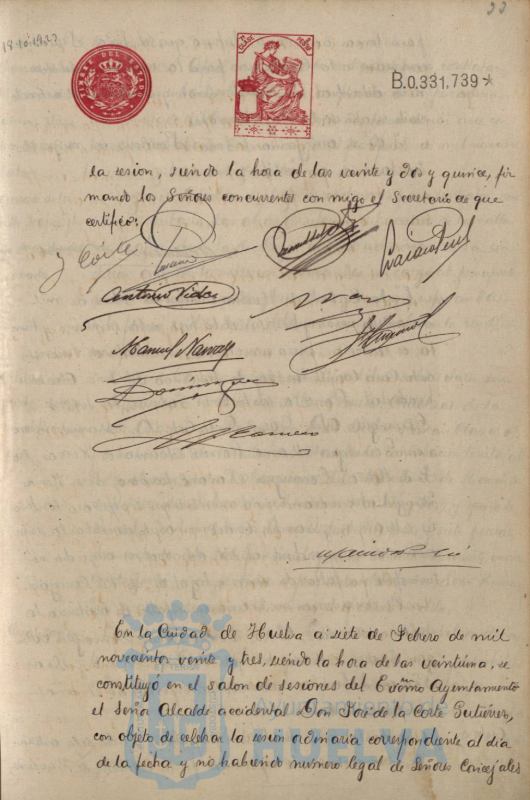 22
TIMBRE DEL ESTADO
CLASE
PESETA
B.0.331,739*
la sesion, siendo la hora de las veinte y dos y quince, fir
mando los Señores concurrentes con migo el Secretario de que
certifico:
J Corte
Antonio Vides
Manuel Narvaez
Dominguez
En la Ciudad de Huelva a siete de Febrero de mil
novecientos veinte y tres, siendo la hora de las veintiuna, se
constituyó en el salon de sesiones del Excmo Ayuntamiento
el Señor Alcalde accidental Don José de la Corte Gutiérrez,
con objeto de celebrar la sesión ordinaria correspondiente al dia
de la fecha y no habiendo numero legal de Señores Concejales
Ayuntamiento de
HUELVA